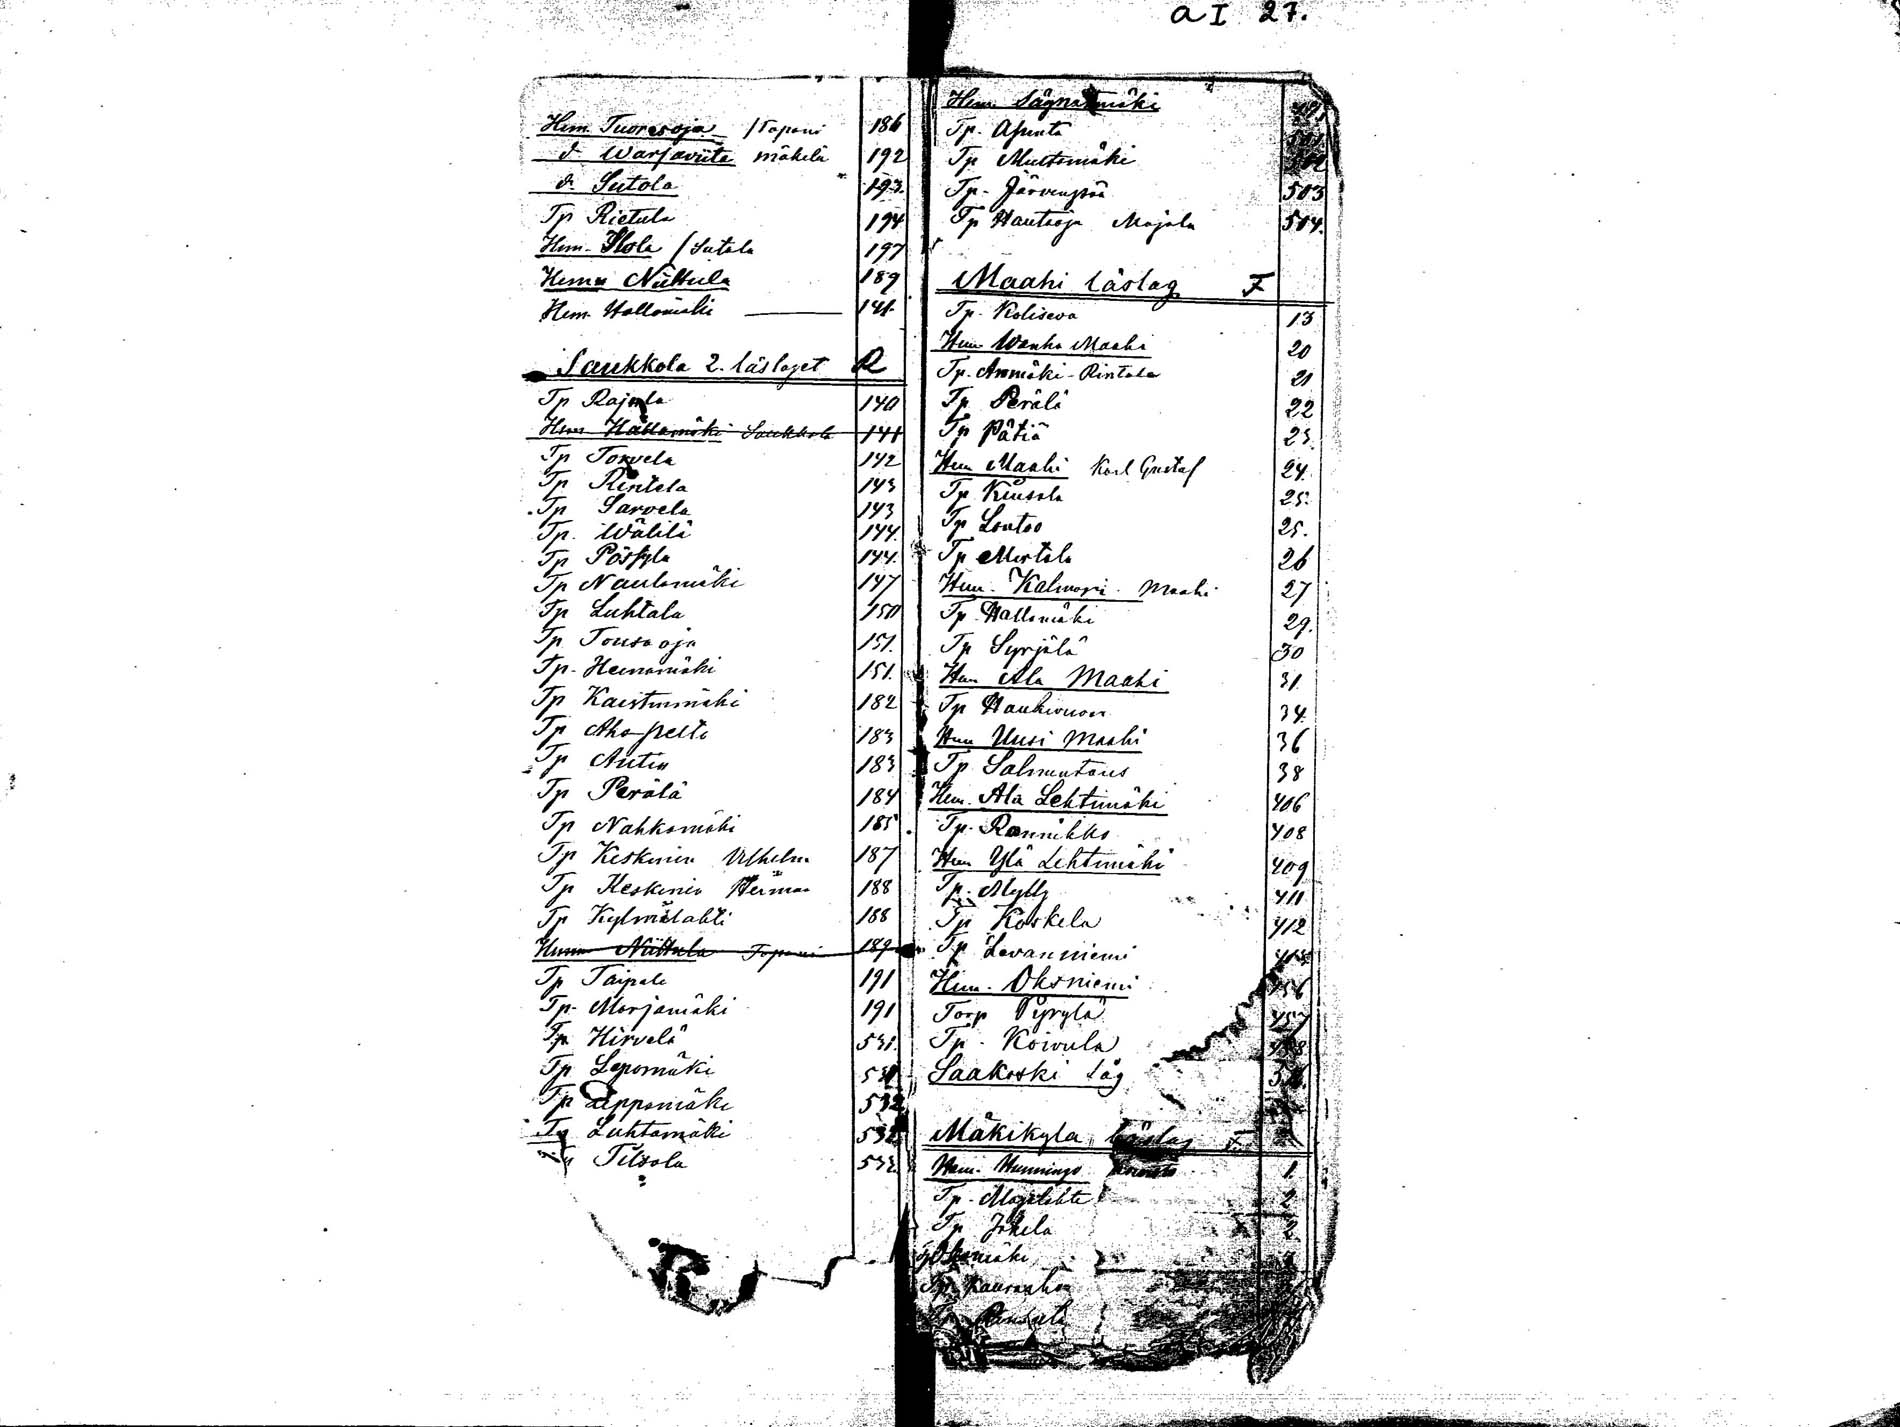 a I 27.
Hem. Tuoresoja /Tapani 186
d. Warjaviita Mäkelä 192
d. Sutola 193.
Tp Rietula 194
Hem. Ilola /Sutola 197
Hemm Niittula 189
Hem. Hallamäki 141.
Saukkola 2. läslaget R
Tp Rajala 140
Hem Hallamäki Saukkola 141
Tp Torvela 142
Tp Rintala 143
Tp Sarvela 143
Tp. Wälilä 144.
Tp Pöykylä 144.
Tp Naulamäki 147
Tp Luhtala 150
Tp Tousaoja 151.
Tp. Heinamäki 151.
Tp Kaistinmäki 182
Tp Ahopelto 183
Tp Antin 183
Tp Perälä 184
Tp Nahkamäki 185
Tp Keskinen Vilhelm 187
Tp Keskinen Herman 188
Tp Kylmälahti 188
Hemm Niittula Tapani 189
Tp Taipale 191
Tp. Marjamäki 191
Tp Hirvelä 531.
Tp Lepomäki 531
Tp Leppämäki 532
Tp Luhtamäki 532
Tilsala 532
Hem. Sägnatmäki
Tp. Apunta
Tp Multamäki
Tp. Järvenpää 503
Tp Hautaoja Majala 504.
Maahi läslag F
Tp. Koliseva 13
Hem Wanha Maahi 20
Tp. Ammäki-Rintala 21
Tp. Perälä 22
Tp Pätiä 23.
Hem Maahi Karl Gustaf 24.
Tp Kiusala 25.
Tp Lautso 25.
Tp Mertala 26
Hem. Kalmari. Maahi 27
Tp. Hallamäki 29.
Tp Syrjälä 30
Hem Ala Maahi 31.
Tp Haukivuori 34.
Hem Uusi Maahi 36
Tp Salmentaus 38
Hem. Ala Lehtimäki 406
Tp. Rannikko 408
Hem Ylä Lehtimäki 409
Tp. Mylly 411
Tp Koskela 412
Tp Levanniemi
Hem. Oksniemi 456
Torp Pyrylä 457
Tp. Koivula 458
Saakoski läg
Mäkikylä läslag F.
Hem. Hunningo 1.
Tp. Majalahti 2.
Tp Jokela 2.